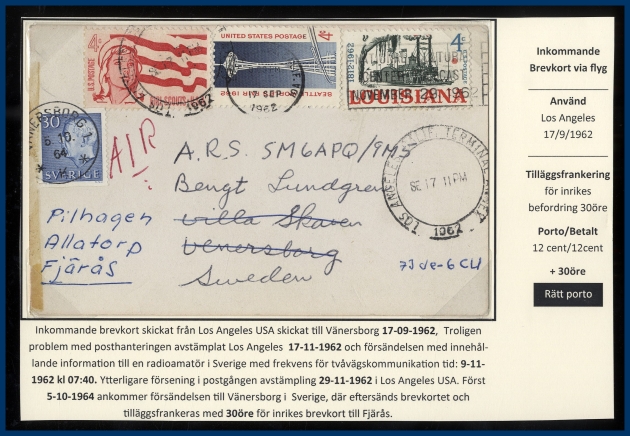 4c
U.S. POSTAGE
UNITED STATES POSTAGE
4c
SEATTLE WORLD'S FAIR 1962
1812-1962
4c
LOUISIANA
NOVEMBER 29 1962
17 SEP
1962
1962
VÄNERSBORG 1
5.10.
64
30
SVERIGE
AIR
A.R.S. SM6APQ/9M5
Bengt Lundgren
Villa Skaven
Venersborg
Sweden
Pilhagen
Allatorp
Fjärås
73 de-6CLI
LOS ANGELES, CALIF. TERMINAL ANNEX
SE 17 11 PM
1962
Inkommande
Brevkort via flyg
Använd
Los Angeles
17/9/1962
Tilläggsfrankering
för inrikes
befordring 30öre
Porto/Betalt
12 cent/12cent
+ 30öre
Rätt porto
Inkommande brevkort skickat från Los Angeles USA skickat till Vänersborg 17-09-1962, Troligen
problem med posthanteringen avstämplat Los Angeles 17-11-1962 och försändelsen med innehål-
lande information till en radioamatör i Sverige med frekvens för tvåvägskommunikation tid: 9-11-
1962 kl 07:40. Ytterligare försening i postgången avstämpling 29-11-1962 i Los Angeles USA. Först
5-10-1964 ankommer försändelsen till Vänersborg i Sverige, där eftersänds brevkortet och
tilläggsfrankeras med 30öre för inrikes brevkort till Fjärås.